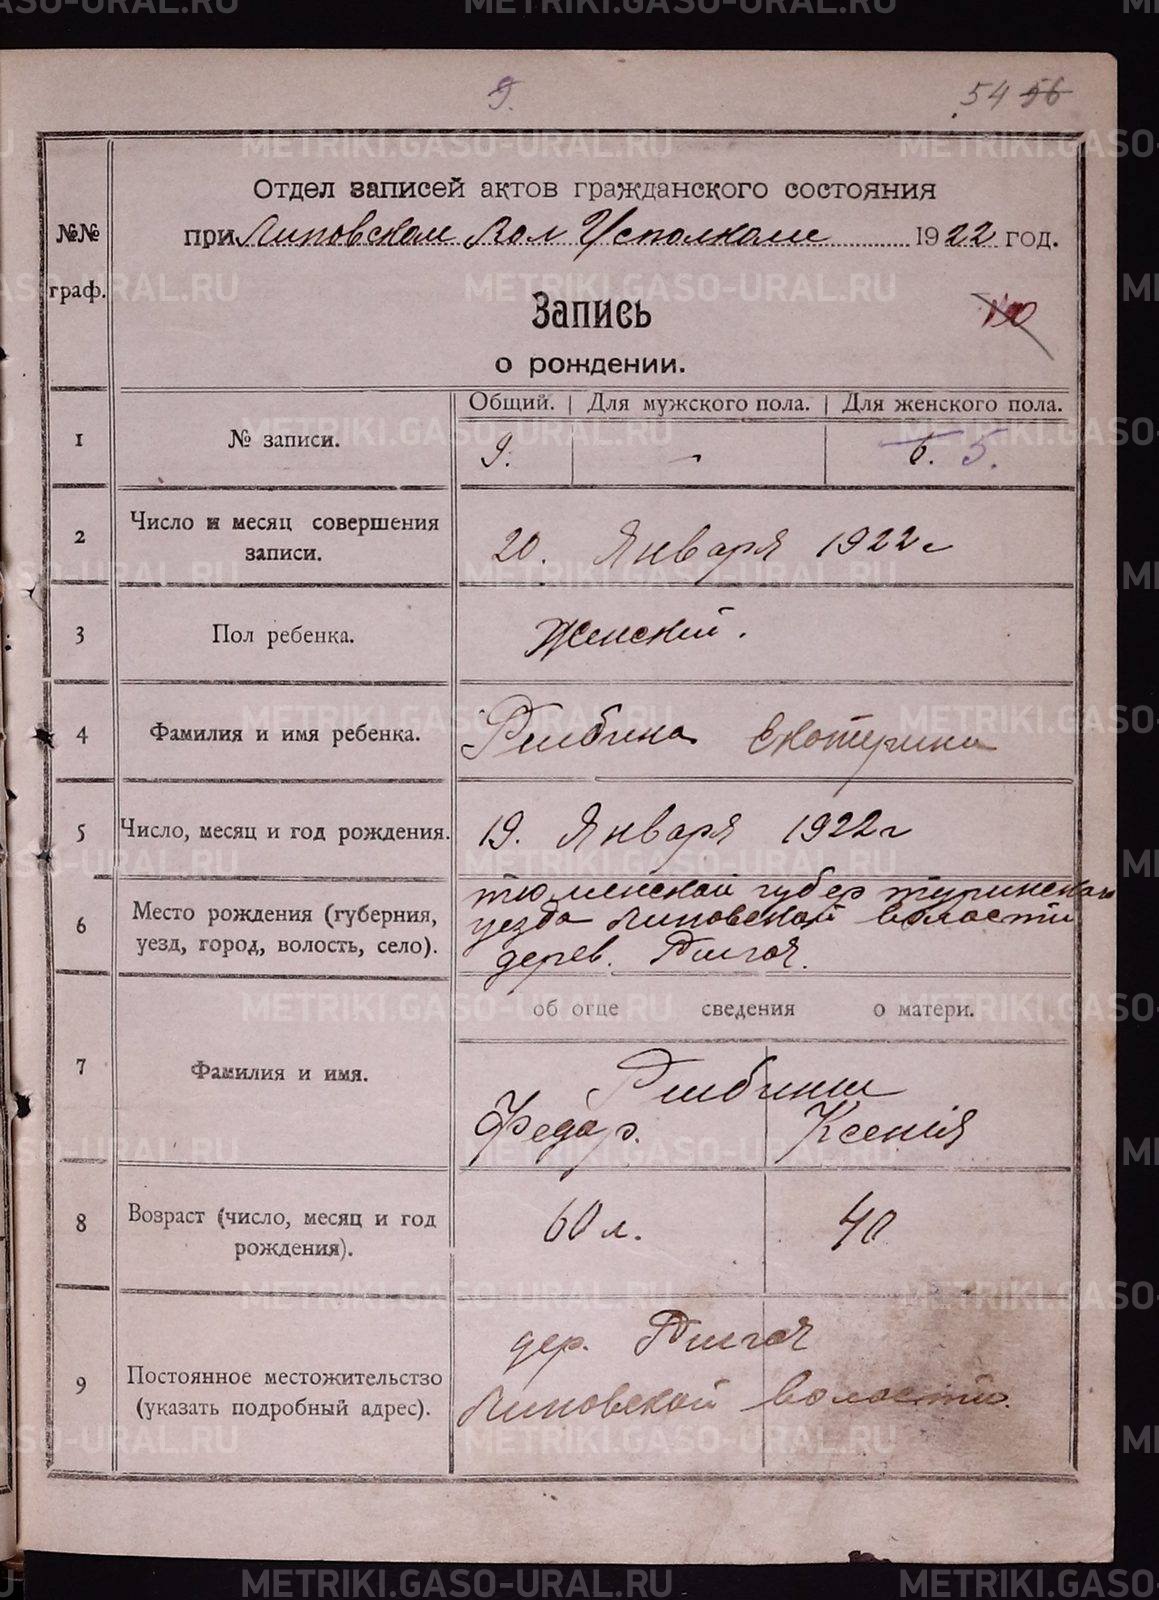 9.
54 56
Отдел записей актов гражданского состояния
при Липовском Вол Исполкоме 1922 год.
№№
граф.
Запись
о рождении.
Общий. | Для мужского пола. | Для женского пола.
1 № записи. 9. - 6. 5.
2 Число и месяц совершения
записи.
20. Января 1922 г
3 Пол ребенка. Женский.
4 Фамилия и имя ребенка. Рыбина Екотерина
5 Число, месяц и год рождения. 19. Января 1922 г
6 Место рождения (губерния,
уезд, город, волость, село).
тюменской губер туринского
уезда Липовской волости
дерев.
об отце сведения о матери.
7 Фамилия и имя.
Рыбины
Федор. Ксенія
8 Возраст (число, месяц и год
рождения).
60 л. 40
9 Постоянное местожительство
(указать подробный адрес).
дер.
Липовской волости.
METRIKI.GASO-URAL.RU